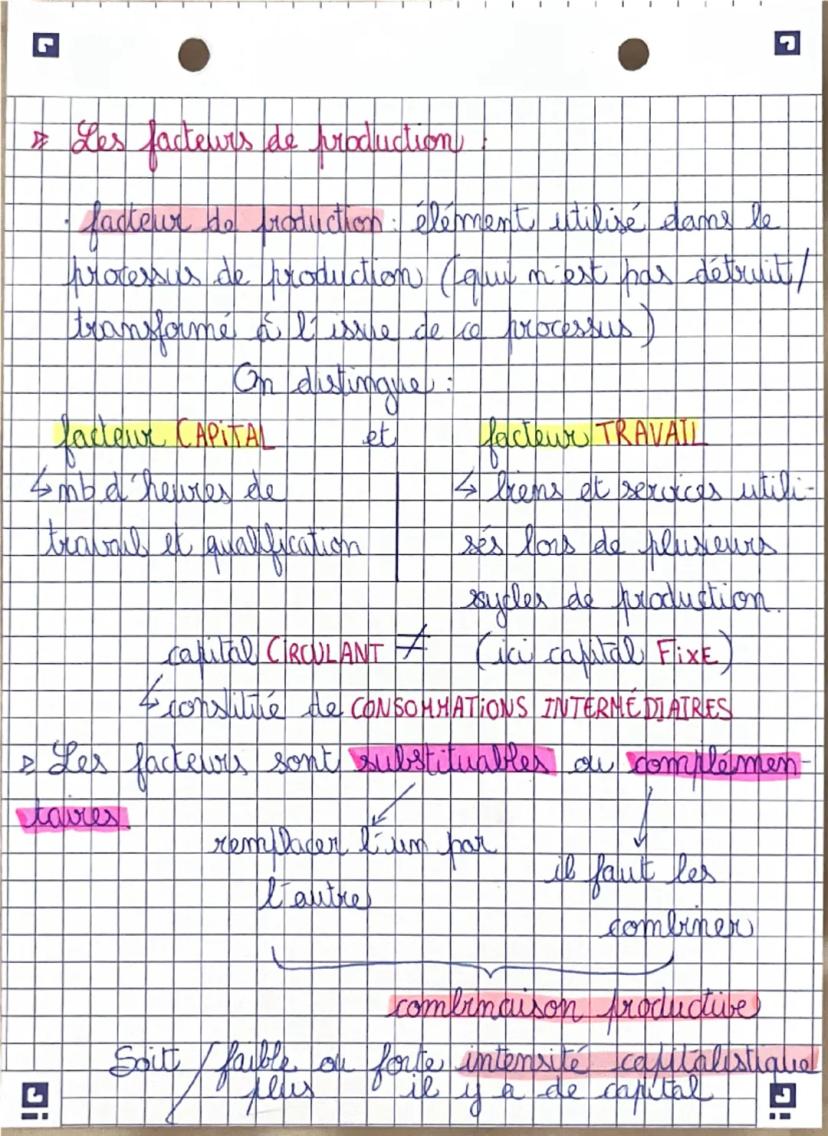 Les facteurs de production :
· facteur de production : élément utilisé dans le
processus de production (qui n'est pas détruit/
transformé à l'issue de ce processus)
On distingue :
facteur CAPITAL et facteur TRAVAIL
↳ nb d'heures de
travail et qualification
↳ biens et services utili-
sés lors de plusieurs
cycles de production.
capital CIRCULANT ≠ (ici capital FIXE)
↳ constitué de CONSOMMATIONS INTERMÉDIAIRES
Les facteurs sont substituables ou complémen-
taires.
remplacer l'un par
l'autre
il faut les
combiner
combinaison productive
Soit / faible ou forte intensité capitalistique
plus il y a de capital